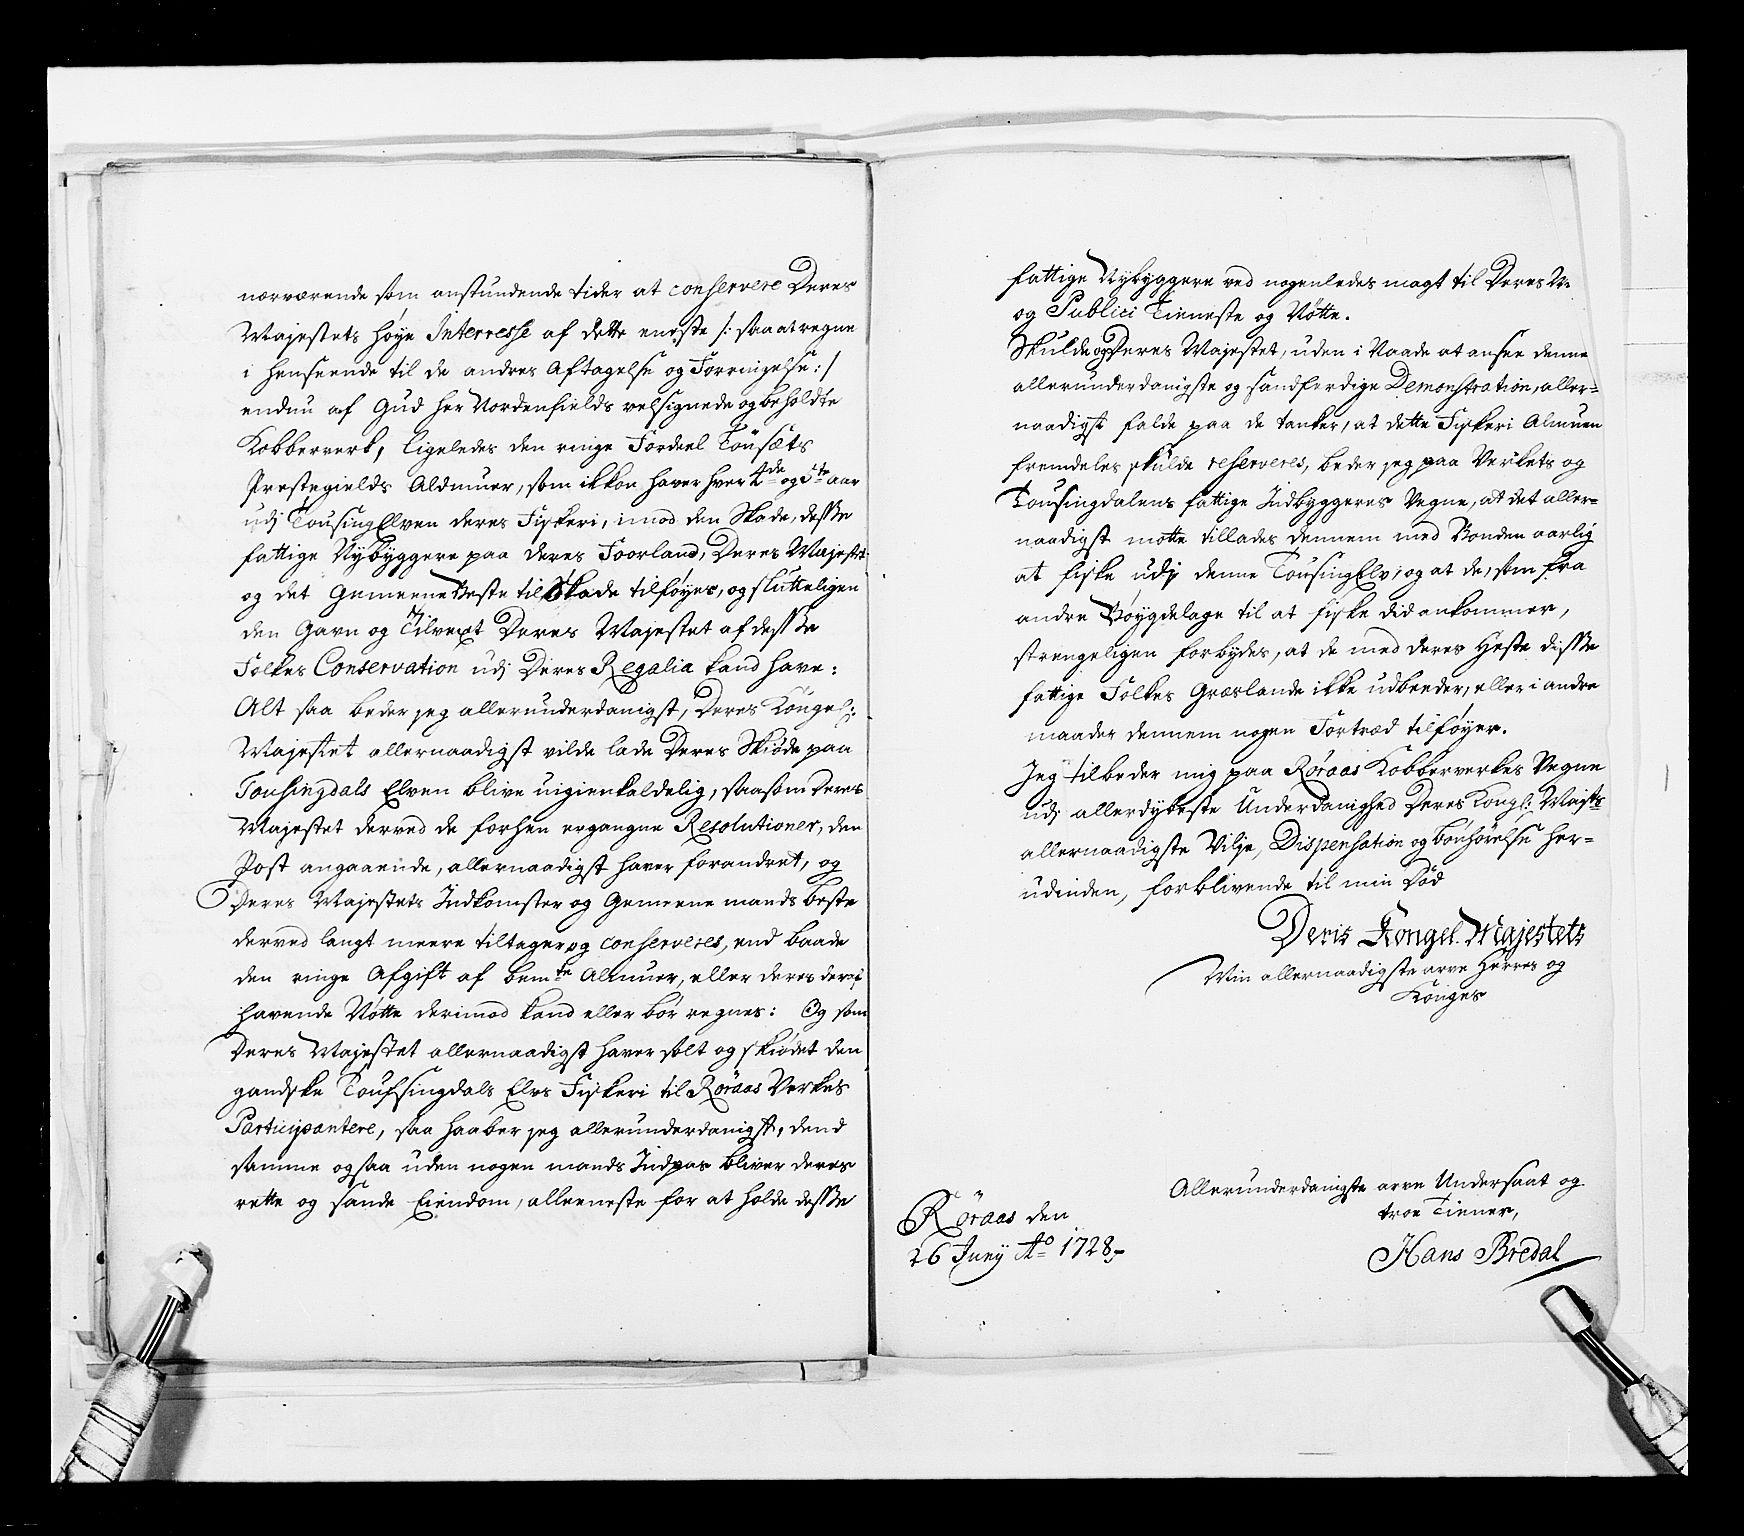 nærværende som anstundende tider at conservere Deres
Majestets høye Interresse af dette eneste /: saa at regne
i henseende til de andres Aftagelse og Forringelse :/
endnu af Gud her Nordenfields velsignede og beholdte
Kobberverk, ligeledes den ringe Fordeel Tönsæts
Prestegields Aldmuer, som ikkon haver hver 4de og 5te aar
udj TousingElven deres Fiskeri, imod den Skade, desse
fattige Nybÿggere paa deres Foorland, Deres Majestet
og det Gemeene Beste til Skade tilføyes, og slutteligen
den Gavn og Tilvext Deres Majestet af desse
Folkes Conservation udj Deres Regalia kand have:
Alt saa beder jeg allerunderdanigst, Deres Kongel:
Majestet allernaadigst vilde lade Deres Skiøde paa
Tousingdals Elven blive uigienkaldelig, saasom Deres
Majestet derved de forhen ergangne Resolutioner, den
Post angaaende, allernaadigst haver forandret, og
Deres Majestets Indkomster og Gemeene mands beste
derved langt meere tiltager og conserveres, end baade
den ringe Afgift af bemte Almuer, eller deres deraf
havende Nøtte derimod kand eller bör regnes: Og som
Deres Majestet allernaadigst haver solt og skiödet den
gandske Toufsingdals Elvs Fiskeri til Röraas Verkes
Participantere, saa haaber jeg allerunderdanigst, dend
samme ogsaa uden nogen mands Indpas bliver deres
rette og sande Eiendom, alleeneste for at holde desse
fattige Nybyggere ved nogenledes magt til Deres M:
og Publici Tieneste og Nötte.
Skulde og Deres Majestet, uden i Naade at ansee denne
allerunderdanigste og sandferdige Demonstration, aller=
naadigst falde paa de tanker, at dette Fiskeri Almuen
fremdeles skulde reserveres, beder jeg paa Verkets og
Tousingdalens fattige Indbyggeres Vegne, at det aller=
naadigst motte tillades dennem med Bonden aarlig
at fiske udj denne TousingElv; og at de, som fra
andre Böygdelage til at fiske did ankommer,
strengeligen forbydes, at de med deres Heste disse
fattige Folkes Græslande ikke udbeeder, eller i andre
maader dennem nogen Fortræd tilföyer.
Jeg tilbeder mig paa Röraas Kobberverkes Vegne
udj allerdybeste Underdanighed Deres Kongl: Majts
allernaadigste Vilje, Dispensation og bönhörelse her=
udinden, forblivende til min Död
Deris Kongel. Majestets
Min allernaadigste arve Herres og
Konges
Allerunderdanigste arve Undersaat og
troe Tiener,
Hans Bredal
Röraas den
26 Junÿ Ao 1728